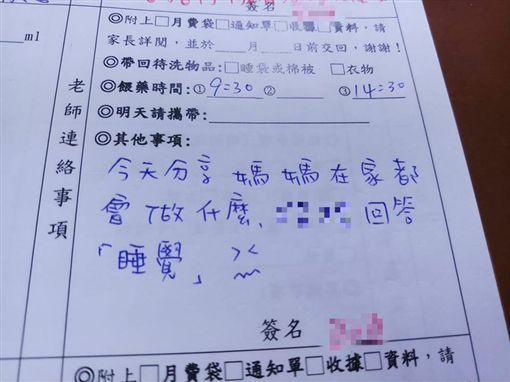 簽名
◎附上□月費袋□通知單□收據□資料,請
家長詳閱,並於____月____日前交回,謝謝!
◎帶回待洗物品:□睡袋或棉被 □衣物
◎餵藥時間:① 9:30 ② ③ 14:30
◎明天請攜帶:
◎其他事項:
今天分享媽媽在家都
會做什麼, 回答
「睡覺」 ><
簽名
◎附上□月費袋□通知單□收據□資料,請
ml
老師連絡事項